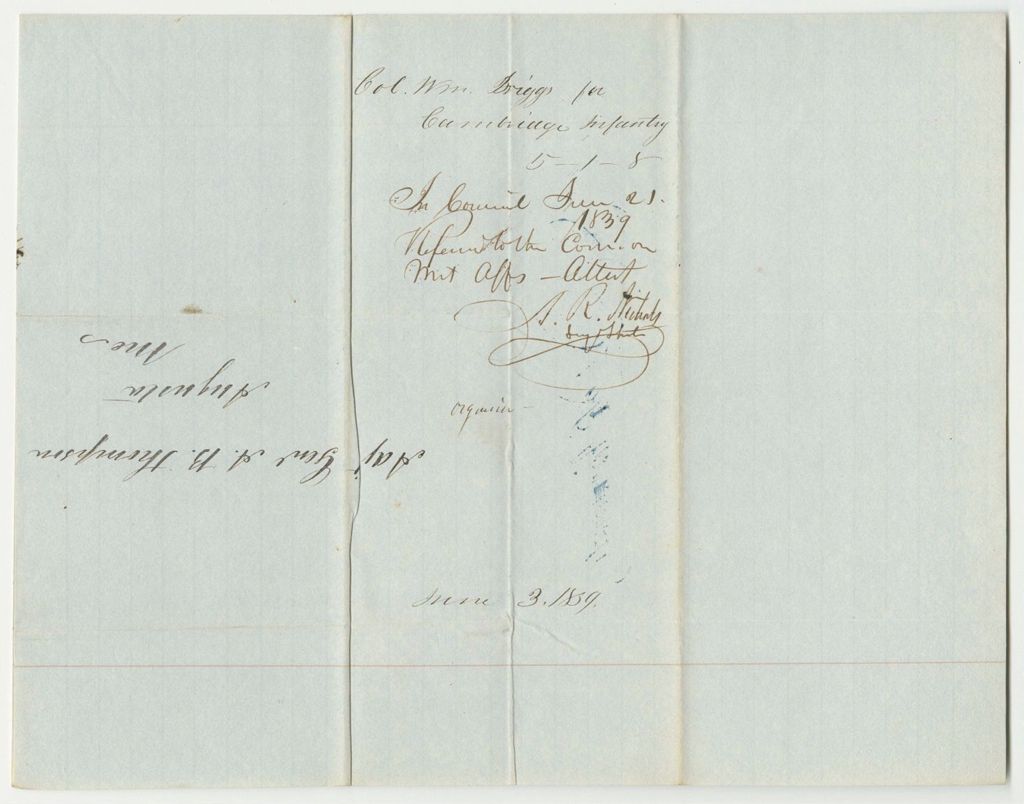 Col. Wm. Briggs for
Cambridge Infantry
5-1-8
In Council June 21.
1839
Referred to the Com. on
Mil Affs – Attest
A. R. Nichols
Secy State
organize –
June 3. 1839.
Adj Genl A. B. Thompson
Augusta
Me